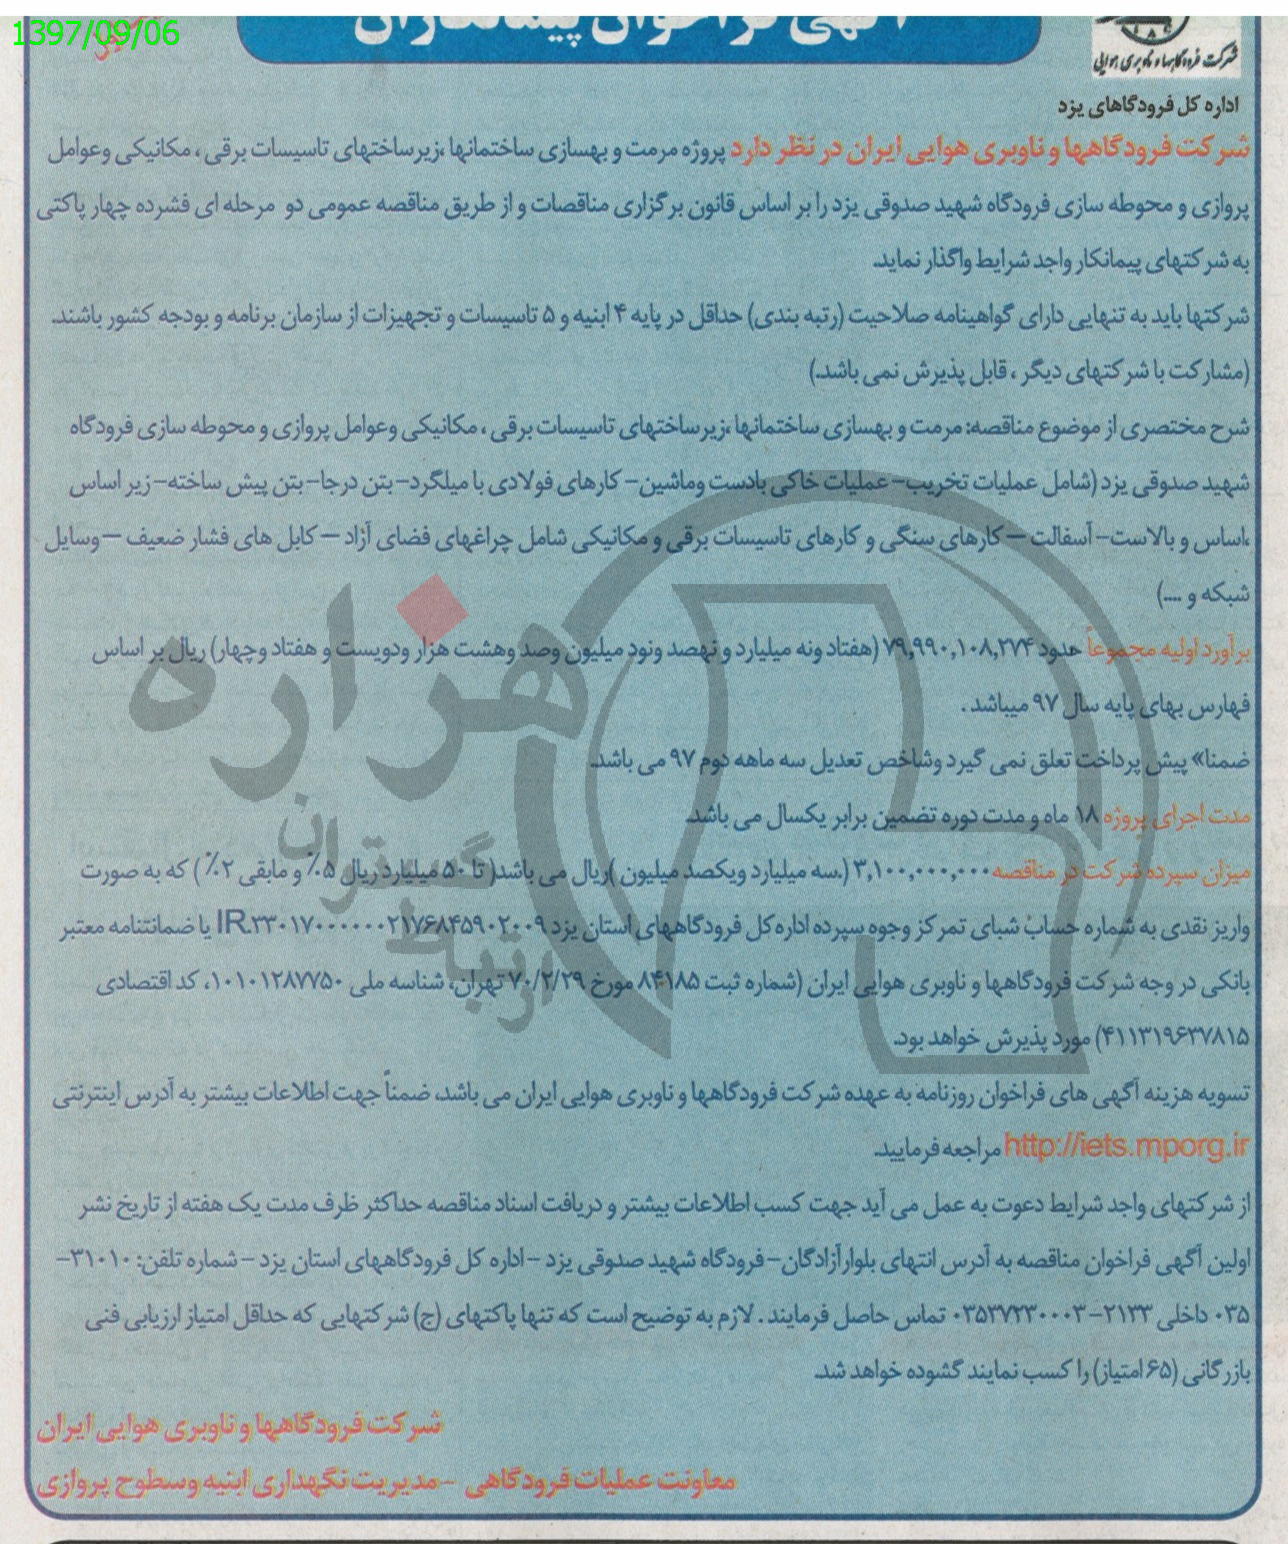 1397/09/06
آگهی فراخوان پیمانکاران
شرکت فرودگاهها و ناوبری هوایی
اداره کل فرودگاههای یزد
شرکت فرودگاهها و ناوبری هوایی ایران در نظر دارد پروژه مرمت و بهسازی ساختمانها ،زیرساختهای تاسیسات برقی ، مکانیکی وعوامل
پروازی و محوطه سازی فرودگاه شهید صدوقی یزد را بر اساس قانون برگزاری مناقصات و از طریق مناقصه عمومی دو مرحله ای فشرده چهار پاکتی
به شرکتهای پیمانکار واجد شرایط واگذار نماید.
شرکتها باید به تنهایی دارای گواهینامه صلاحیت (رتبه بندی) حداقل در پایه ۴ ابنیه و ۵ تاسیسات و تجهیزات از سازمان برنامه و بودجه کشور باشند.
(مشارکت با شرکتهای دیگر ، قابل پذیرش نمی باشد.)
شرح مختصری از موضوع مناقصه: مرمت و بهسازی ساختمانها ،زیرساختهای تاسیسات برقی ، مکانیکی وعوامل پروازی و محوطه سازی فرودگاه
شهید صدوقی یزد (شامل عملیات تخریب- عملیات خاکی بادست وماشین- کارهای فولادی با میلگرد- بتن درجا- بتن پیش ساخته- زیر اساس
،اساس و بالاست- آسفالت – کارهای سنگی و کارهای تاسیسات برقی و مکانیکی شامل چراغهای فضای آزاد – کابل های فشار ضعیف –وسایل
شبکه و ....)
برآورد اولیه مجموعاً حدود ۷۹,۹۹۰,۱۰۸,۲۷۴ (هفتاد ونه میلیارد و نهصد ونود میلیون وصد وهشت هزار ودویست و هفتاد وچهار) ریال بر اساس
فهارس بهای پایه سال ۹۷ میباشد .
ضمنا» پیش پرداخت تعلق نمی گیرد وشاخص تعدیل سه ماهه دوم ۹۷ می باشد.
مدت اجرای پروژه ۱۸ ماه و مدت دوره تضمین برابر یکسال می باشد.
میزان سپرده شرکت در مناقصه ۳,۱۰۰,۰۰۰,۰۰۰ (.سه میلیارد ویکصد میلیون )ریال می باشد( تا ۵۰ میلیارد ریال ۵٪ و مابقی ۲٪ ) که به صورت
واریز نقدی به شماره حساب شبای تمرکز وجوه سپرده اداره کل فرودگاههای استان یزد IR.۳۳۰۱۷۰۰۰۰۰۰۰۲۱۷۶۸۴۵۹۰۲۰۰۹ یا ضمانتنامه معتبر
بانکی در وجه شرکت فرودگاهها و ناوبری هوایی ایران (شماره ثبت ۸۴۱۸۵ مورخ ۷۰/۲/۲۹ تهران، شناسه ملی ۱۰۱۰۱۲۸۷۷۵۰، کد اقتصادی
۴۱۱۳۱۹۶۳۷۸۱۵) مورد پذیرش خواهد بود.
تسویه هزینه آگهی های فراخوان روزنامه به عهده شرکت فرودگاهها و ناوبری هوایی ایران می باشد، ضمناً جهت اطلاعات بیشتر به آدرس اینترنتی
http://iets.mporg.ir مراجعه فرمایید.
از شرکتهای واجد شرایط دعوت به عمل می آید جهت کسب اطلاعات بیشتر و دریافت اسناد مناقصه حداکثر ظرف مدت یک هفته از تاریخ نشر
اولین آگهی فراخوان مناقصه به آدرس انتهای بلوارآزادگان- فرودگاه شهید صدوقی یزد - اداره کل فرودگاههای استان یزد – شماره تلفن: ۳۱۰۱۰-
۰۳۵ داخلی ۲۱۳۳- ۰۳۵۳۷۲۳۰۰۰۳ تماس حاصل فرمایند . لازم به توضیح است که تنها پاکتهای (ج) شرکتهایی که حداقل امتیاز ارزیابی فنی
بازرگانی (۶۵ امتیاز) را کسب نمایند گشوده خواهد شد.
شرکت فرودگاهها و ناوبری هوایی ایران
معاونت عملیات فرودگاهی - مدیریت نگهداری ابنیه وسطوح پروازی
هزاره
گستران
ارتباط